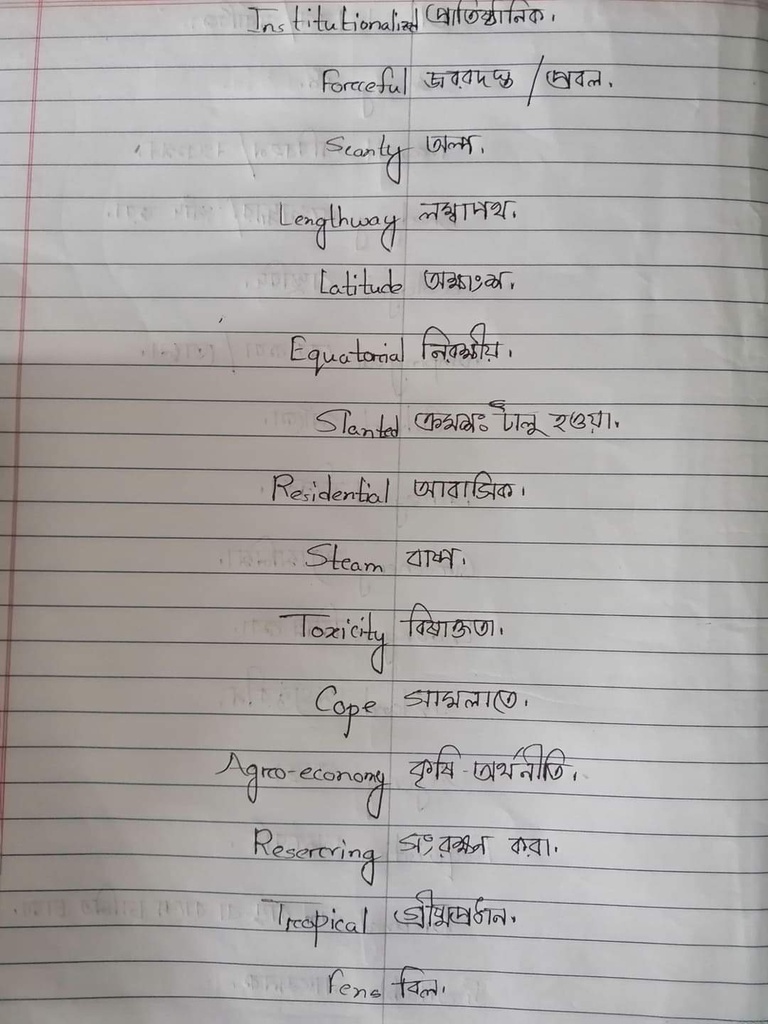 Institutionalized প্রাতিষ্ঠানিক.
Forceful জবরদস্ত / প্রবল.
Scanty অল্প.
Lengthway লম্বাপথ.
Latitude অক্ষাংশ.
Equatorial নিরক্ষীয়.
Slanted ক্রমশঃ ঢালু হওয়া.
Residential আবাসিক.
Steam বাষ্প.
Toxicity বিষাক্ততা.
Cope সামলাতে.
Agro-economy কৃষি-অর্থনীতি.
Reserving সংরক্ষন করা.
Tropical গ্রীষ্মপ্রধান.
Fens বিল.